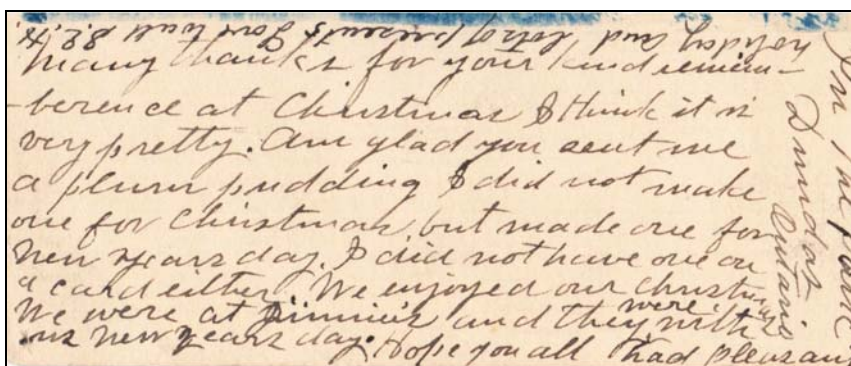 many thanks for your kind remem-
-berence at Christmas I think it is
very pretty. Am glad you sent me
a plum pudding I did not make
one for Christmas, but made one for
new years day. I did not have one on
a card either. We enjoyed our christmas
We were at Jimmie's and they were with
us new years day. Hope you all had pleasant
holiday and lots of presents
Dundas
Ontario